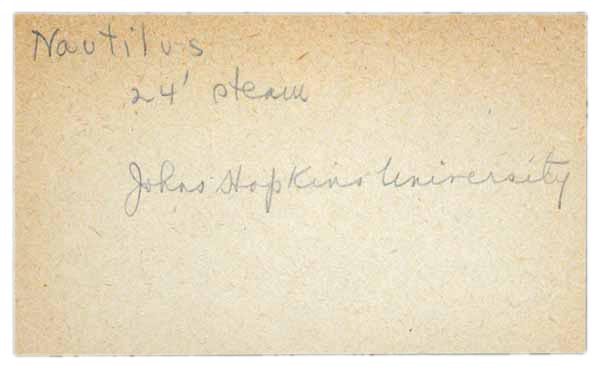 Nautilus
24' steam
Johns Hopkins University